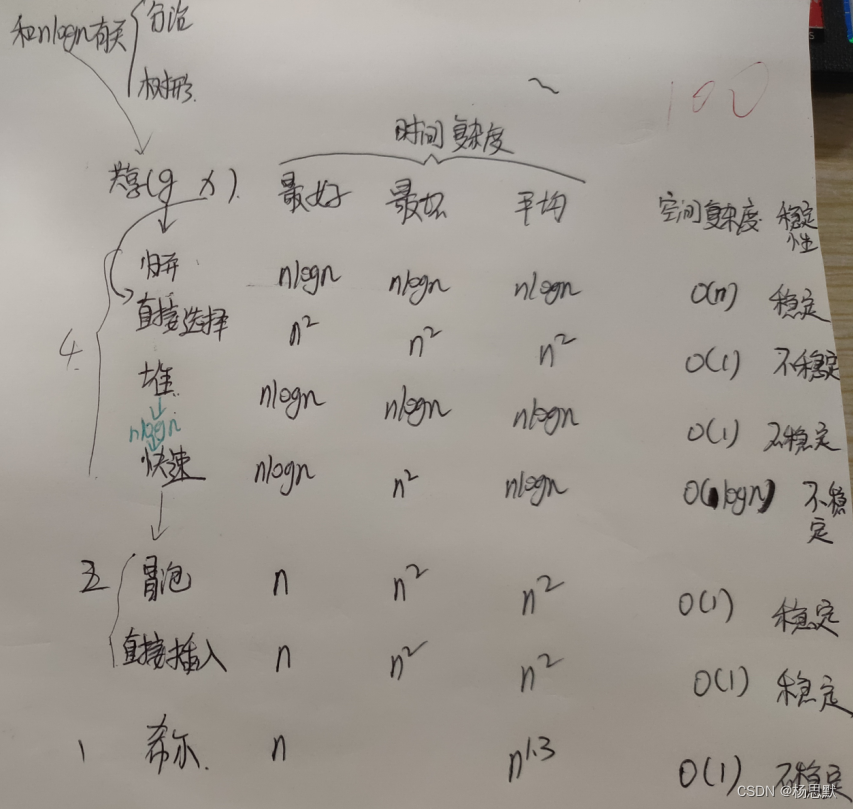 和nlogn有关 分治
树形
100
时间复杂度
类高(g x) 最好 最坏 平均 空间复杂度 稳定性
归并 nlogn nlogn nlogn O(n) 稳定
直接选择 n² n² n² O(1) 不稳定
4 堆 nlogn nlogn nlogn O(1) 不稳定
nlogn
快速 nlogn n² nlogn O(logn) 不稳定
2 冒泡 n n² n² O(1) 稳定
直接插入 n n² n² O(1) 稳定
1 希尔. n n^1.3 O(1) 不稳定
CSDN @杨思默